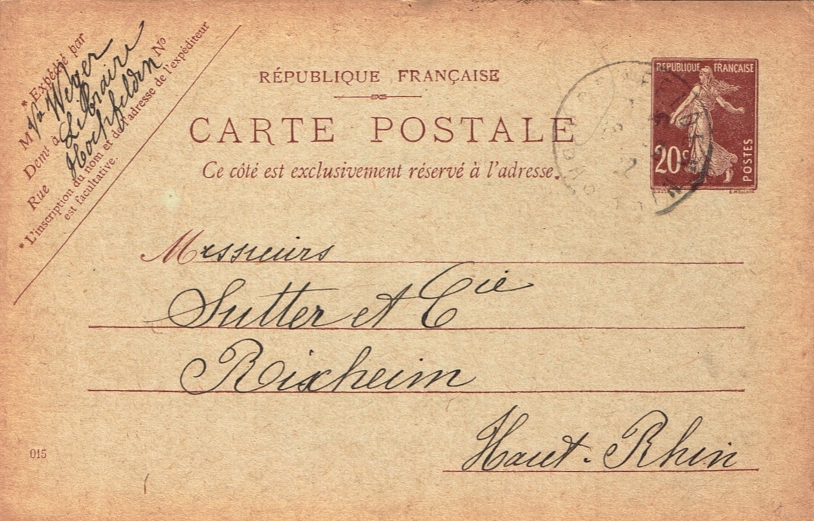 * Expédié par
M Vve Weger
Demt à Libraire
Rue Hochfelden No
* L'inscription du nom et de l'adresse de l'expéditeur
est facultative.
RÉPUBLIQUE FRANÇAISE
CARTE POSTALE
Ce côté est exclusivement réservé à l'adresse.
RÉPUBLIQUE FRANÇAISE
20c
POSTES
Messieurs
Sutter et Cie
Rixheim
Haut-Rhin
015